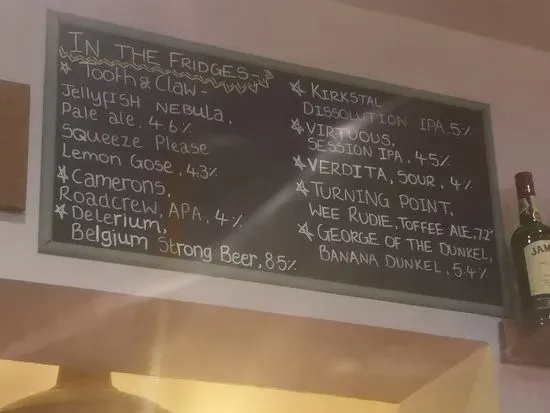 IN THE FRIDGES-
Tooth & Claw -
Jellyfish NEBULA,
Pale ale. 4.6%
SQueeze Please
Lemon Gose, 4.3%
Camerons,
Roadcrew, APA, 4%
Delerium,
Belgium Strong Beer, 8.5%
KIRKSTAL
DISSOLUTION IPA, 5%
VIRTUOUS,
SESSION IPA, 4.5%
VERDITA, SOUR, 4%
TURNING POINT,
WEE RUDIE, TOFFEE ALE, 7.2%
GEORGE OF THE DUNKEL,
BANANA DUNKEL, 5.4%